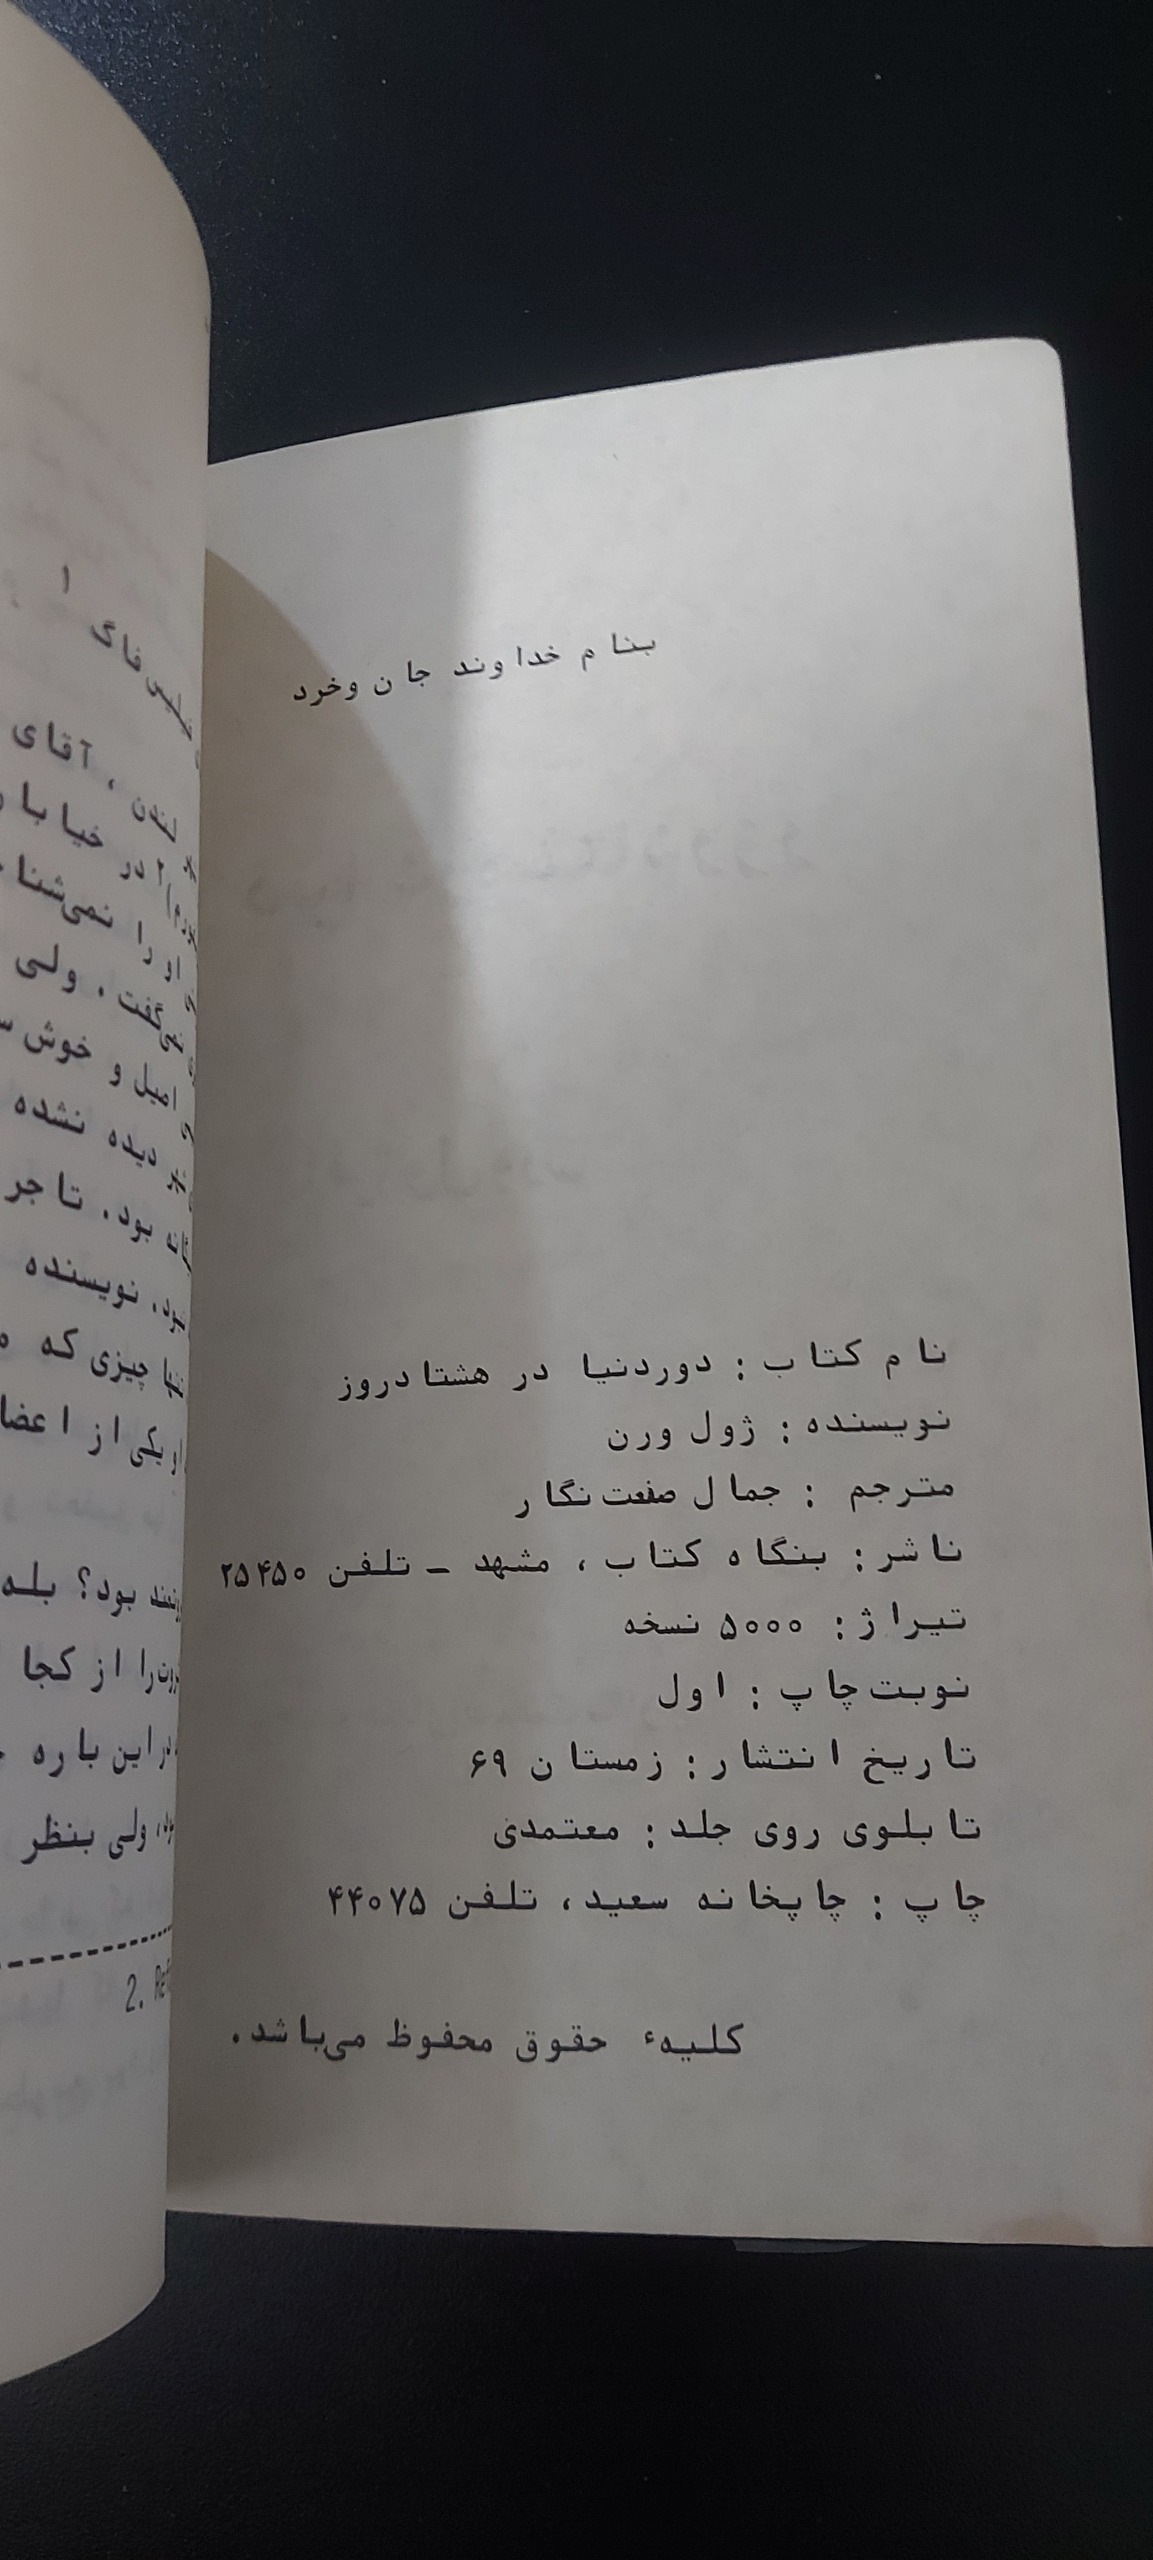 بنام خداوند جان وخرد
نام کتاب : دوردنیا در هشتادروز
نویسنده : ژول ورن
مترجم : جمال صنعت‌نگار
ناشر : بنگاه کتاب ، مشهد - تلفن ۲۵۴۵۰
تیراژ : ۵۰۰۰ نسخه
نوبت‌چاپ : اول
تاریخ انتشار : زمستان ۶۹
تابلوی روی جلد : معتمدی
چاپ : چاپخانه سعید ، تلفن ۴۴۰۷۵
کلیهٔ حقوق محفوظ می‌باشد.
فاگ ۱
لندن ، آقای
در خیابا
او را نمی‌شنا
ولی
و خوش
دیده نشده
بود. تاجر
نویسنده
چیزی که
یکی از اعضا
بود؟ بله
را از کجا
در این باره
ولی بنظر
2. Ref